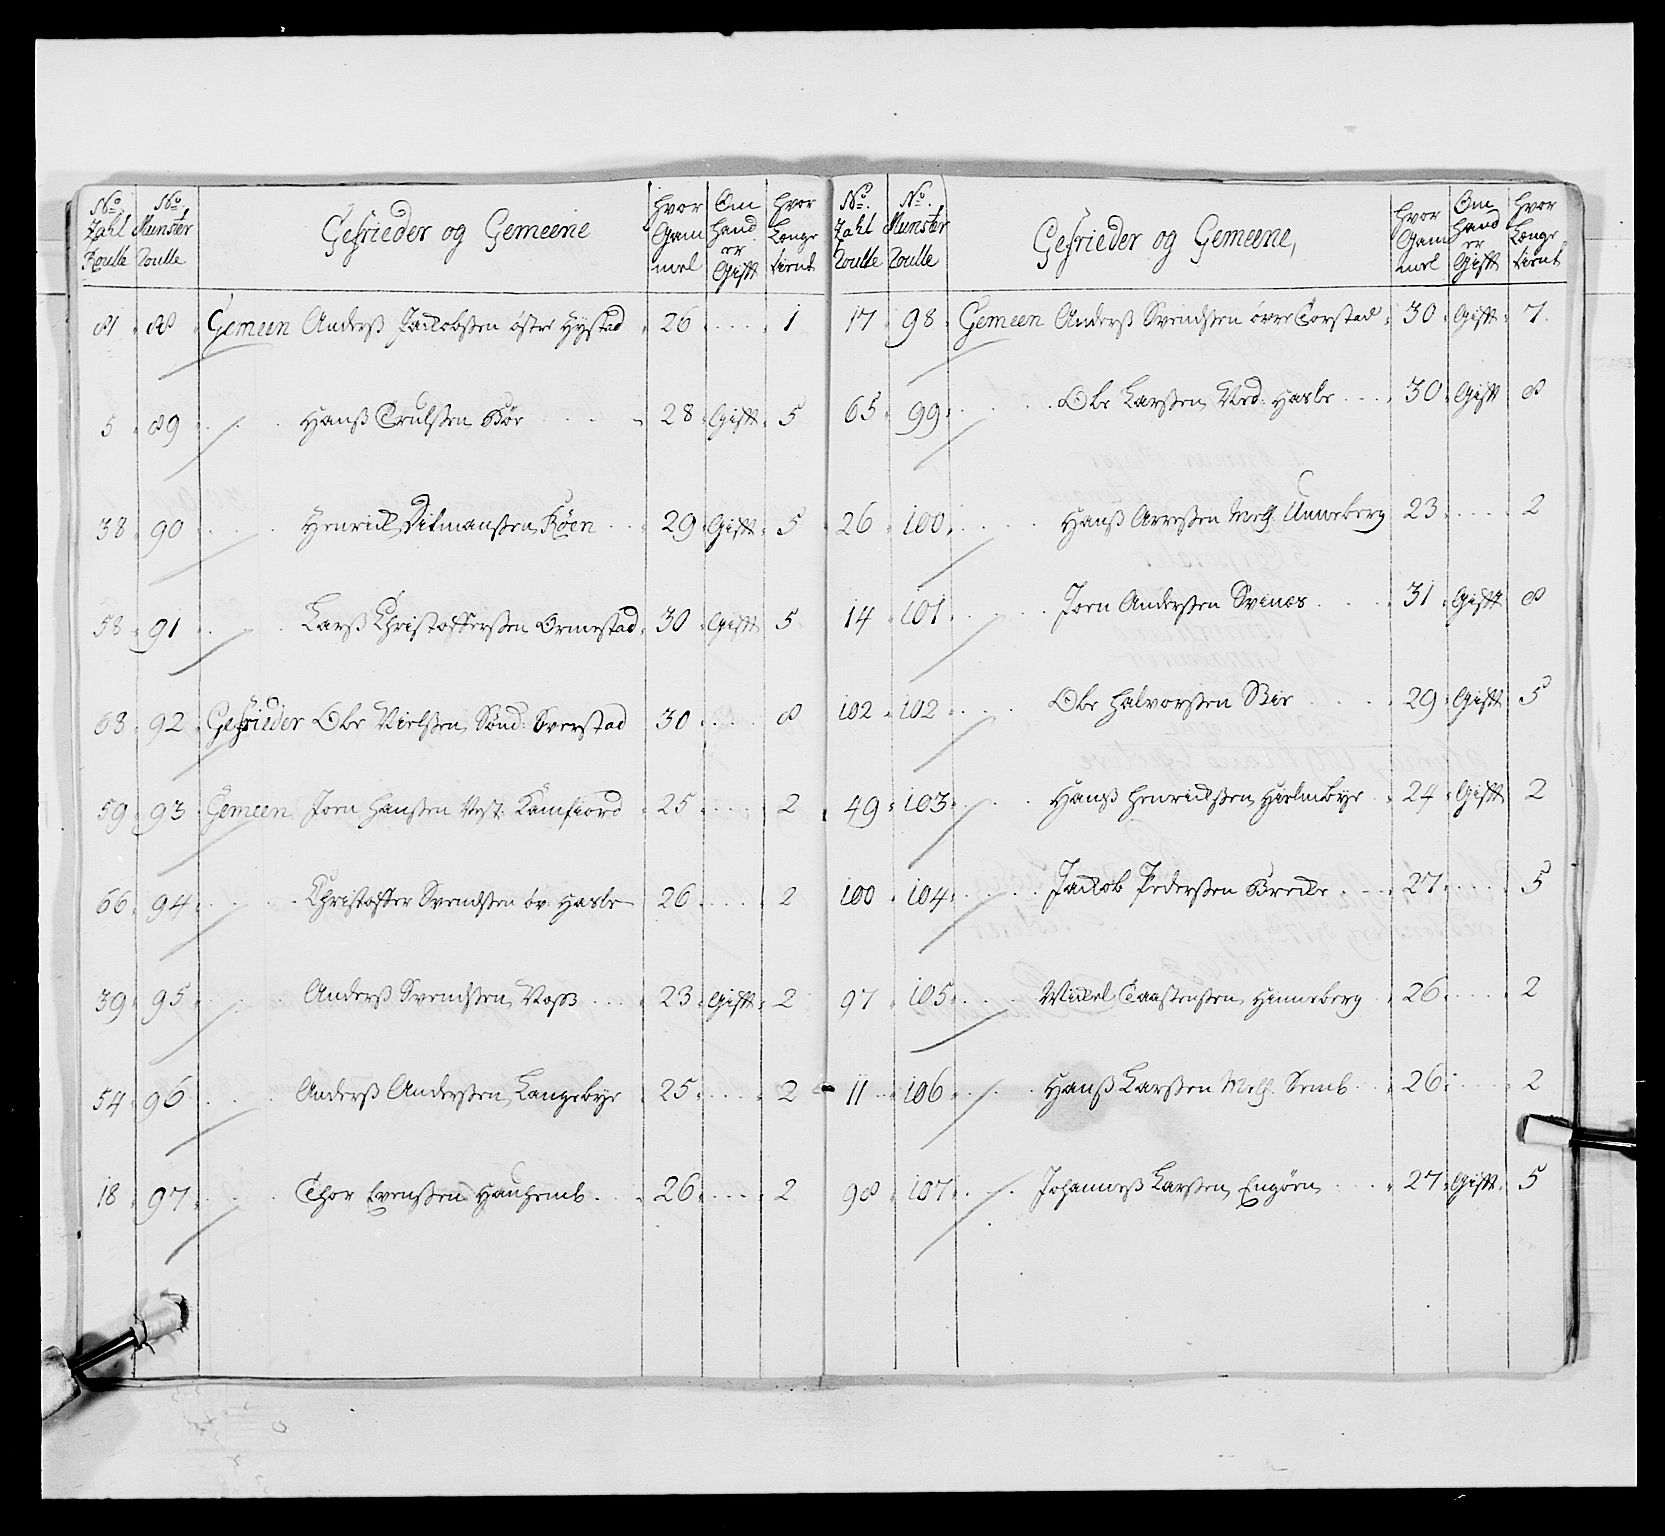 No. Zahl Roulle | No. Munster Roulle | Gefrieder og Gemeene | hvor Gam mel | Om hand er Gifft | hvor Længe tient
81 | 88 | Gemeen Anderß Jacobsen östre Hystad | 26 | | 1
5 | 89 | Hanß Trulßen Bör | 28 | Gifft | 5
38 | 90 | Henrich Ditmanßen Röen | 29 | Gifft | 5
58 | 91 | Larß Christofferßen Ormestad | 30 | Gifft | 5
68 | 92 | Gefrieder Ole Nielßen Sönd: Sverstad | 30 | | 8
59 | 93 | Gemeen Joen Hanßen Vest: Kamfiord | 25 | | 2
66 | 94 | Christoffer Svendßen öv: Hasle | 26 | | 2
39 | 95 | Anderß Svendßen Roßß | 23 | Gifft | 2
54 | 96 | Anderß Anderßen Langebye | 25 | | 2
18 | 97 | Thor Evenßen Hauhemb | 26 | | 2
No. Zahl Roulle | No. Munster Roulle | Gefrieder og Gemeene, | hvor Gam mel | Om hand er Gifft | hvor Længe tient
17 | 98 | Gemeen Anderß Svendßen övre Torstad | 30 | Gifft | 7
65 | 99 | Ole Larßen Ned: Hasle | 30 | Gifft | 8
26 | 100 | Hanß Arneßen Mell: Unneberg | 23 | | 2
14 | 101 | Joen Anderßen Svines | 31 | Gifft | 8
102 | 102 | Ole Halvorßen Bie | 29 | Gifft | 5
49 | 103 | Hanß Henrichßen Hielmbye | 24 | Gifft | 2
100 | 104 | Jacob Pederßen Brecke | 27 | | 5
97 | 105 | Mickel Taastenßen Hinneberg | 26 | | 2
11 | 106 | Hanß Larßen Mell: Semb | 26 | | 2
98 | 107 | Johanneß Larßen Engöen | 27 | Gifft | 5